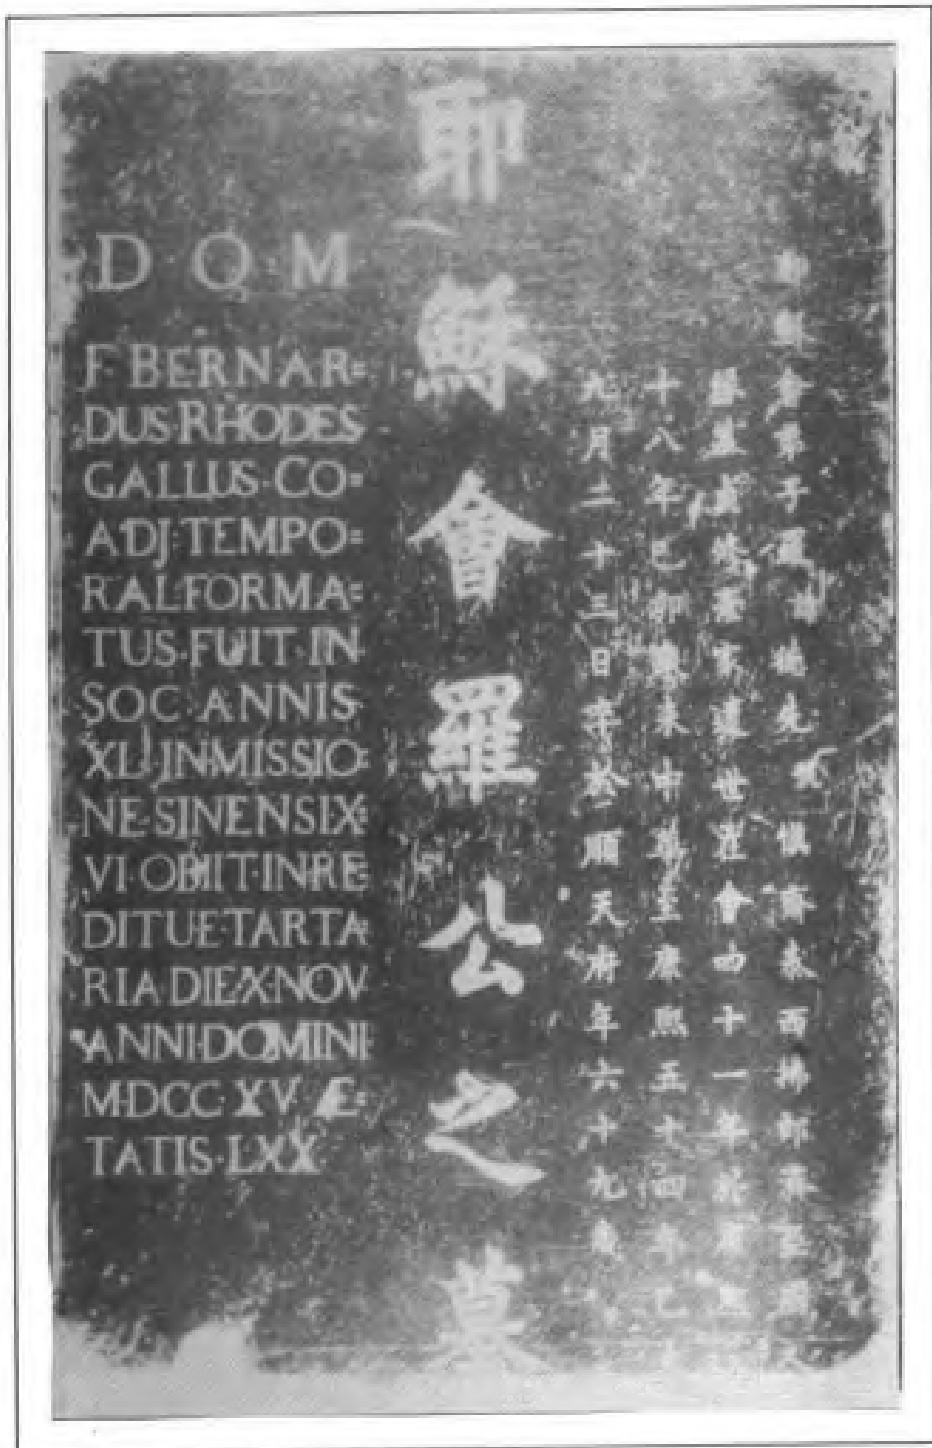 D·O·M
F·BERNAR=
DUS·RHODES
GALLUS·CO=
ADJ·TEMPO=
RAL·FORMA=
TUS·FUIT·IN
SOC·ANNIS
XLI·IN·MISSIO=
NE·SINENSI·X=
VI·OBIIT·IN·RE
DITU·E·TARTA
RIA·DIE·X·NOV
ANNI·DOMINI
M·DCC·XV·Æ=
TATIS·LXX
耶穌會羅公之墓
耶穌會弟子羅諱先號慎齋泰西拂郎濟亞國
真修棄家遺世在會四十一年於康熙
十八年己卯歲來中華至康熙五十四年乙
九月二十三日卒於順天府年六十九歲